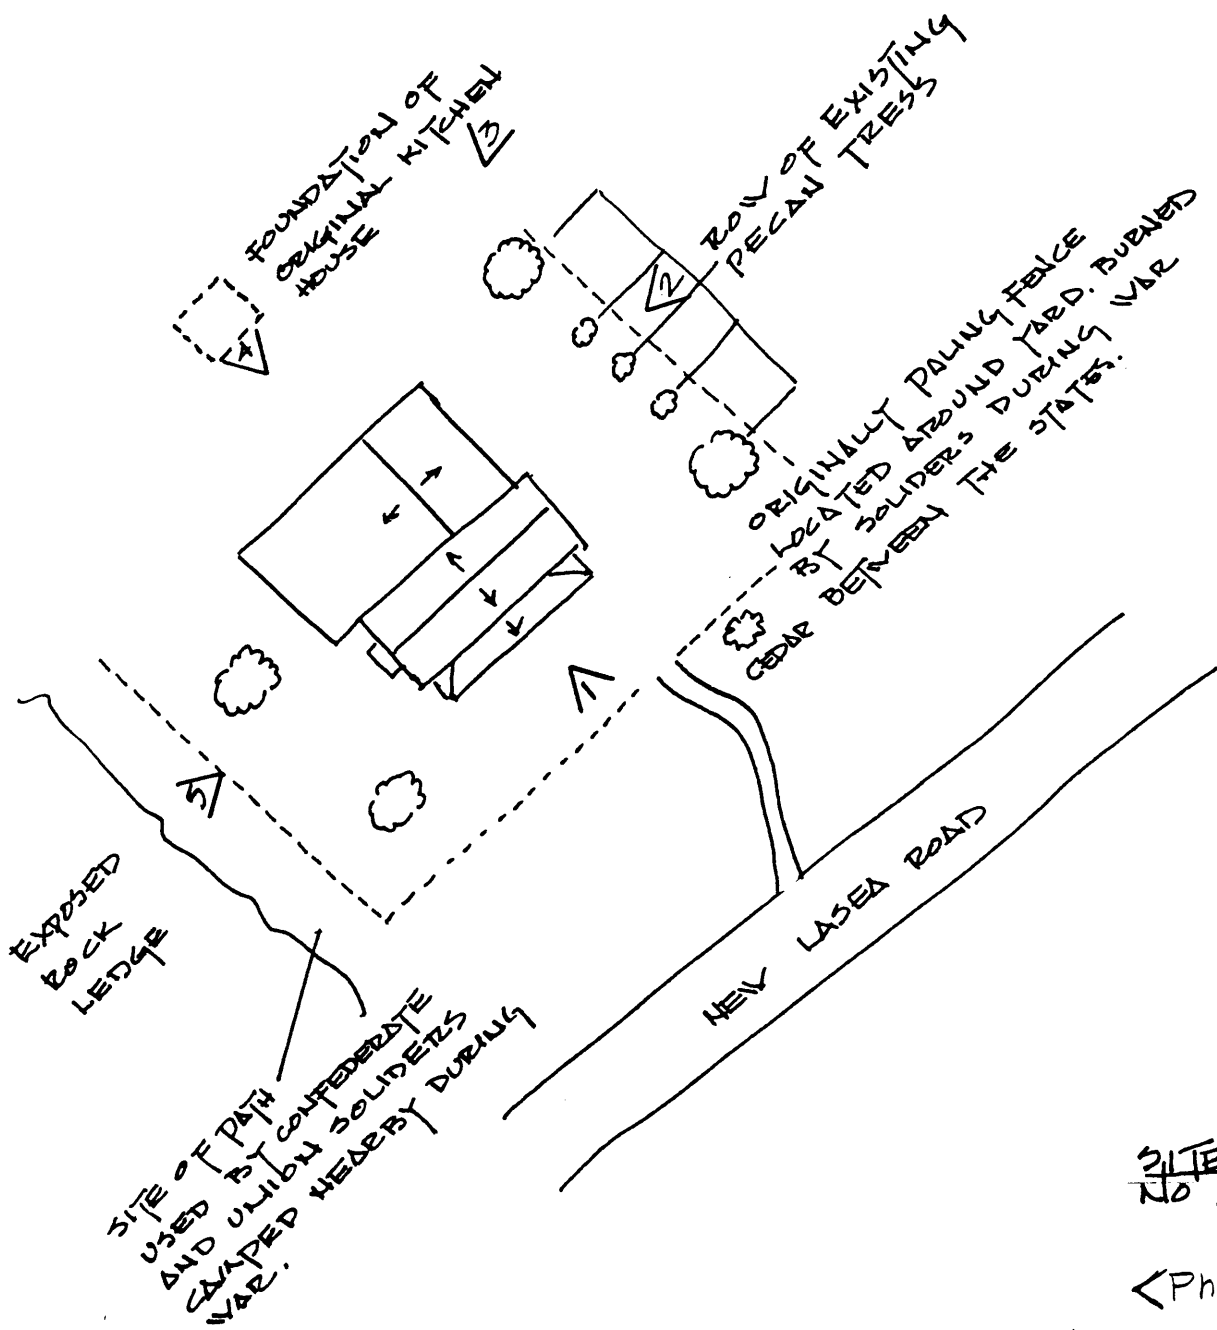 FOUNDATION OF
ORIGINAL KITCHEN
HOUSE
3
ROW OF EXISTING
PECAN TRESS
2
4
ORIGINALLY PALING FENCE
LOCATED AROUND YARD. BURNED
BY SOLIDERS DURING WAR
BETWEEN THE STATES.
CEDAR
1
5
EXPOSED
ROCK
LEDGE
NEW LASEA ROAD
SITE OF PATH
USED BY CONFEDERATE
AND UNION SOLIDERS
CAMPED NEARBY DURING
WAR.
SITE
NO
<Ph